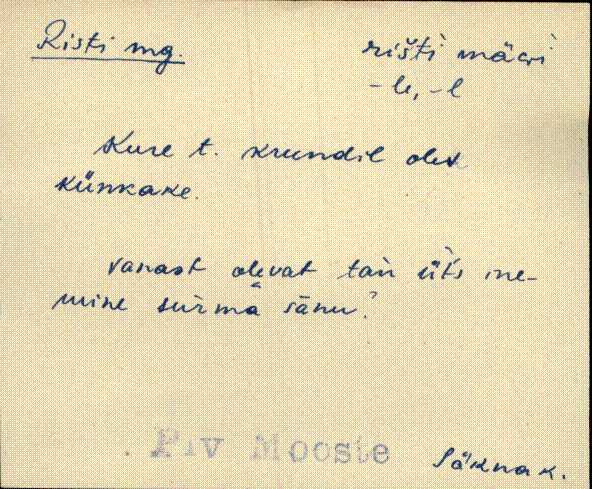 Risti mg. rišti mäcvi
-le, -l
Kure t. krundil olev
künkake.
vanast olevat tain üts ine-
mine surma sānu.
Plv Mooste Säkna k.